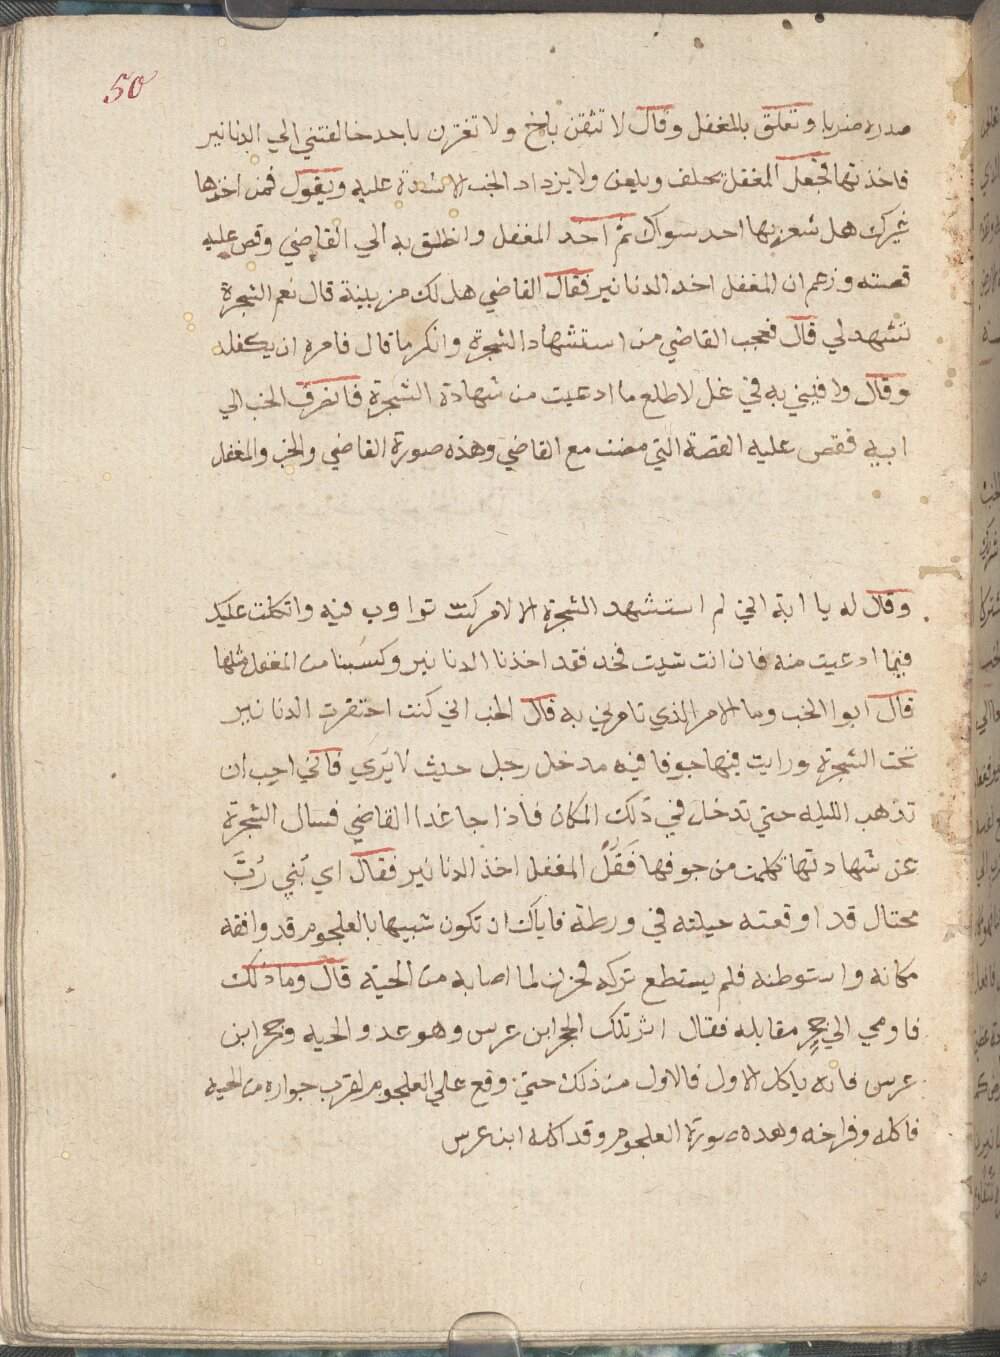 50
صدره ضربا وتعلق بالمغفل وقال لا تثقن باخ ولا تغترن باحد خالفتني الي الدنانير
فاخذتها فجعل المغفل يحلف ويلعن ولا يزداد الخب الا شدة عليه ويقول فمن اخذها
غيرك هل شعر بها احد سواك ثم اخد المغفل وانطلق به الي القاضي وقص عليه
قصته وزعم ان المغفل اخد الدنانير فقال القاضي هل لك من بينة قال نعم الشجرة
تشهد لي قال فعجب القاضي من استشهاد الشجرة وانكر ما قال فامره ان يكفله
وقال وافيني به في غد لاطلع ما ادعيت من شهادة الشجرة فانصرف الخب الي
ابيه فقص عليه القصة التي مضت مع القاضي وهذه صورة القاضي والخب والمغفل
وقال له يا ابة اني لم استشهد الشجرة الا لامر كنت توا وب فيه واتكلت عليك
فيما ادعيت منه فان انت شيت فخد فقد اخذنا الدنانير وكسبنا من المغفل مثلها
قال ابوا الخب وما الامر الذي تامرني به قال الخب اني كنت احتقرت الدنانير
تحت الشجرة ورايت فيها جوفا فيه مدخل رجل حيث لا يري فاني احب ان
تذهب الليله حتي تدخل في ذلك المكان فاذا جا غدا القاضي فسال الشجرة
عن شهادتها تكلمت من جوفها فقل المغفل اخذ الدنانير فقال اي بني رب
محتال قد اوقعته حيلته في ورطة فاياك ان تكون شبيها بالعلجوم قد وافقه
مكانه واستوطنه فلم يستطع تركه فحزن لما اصابه من الحية قال وما ذلك
فاومي الي جحر مقابله فقال انزتلك الجحر ابن عرس وهو عدو الحيه وجحر ابن
عرس فانه ياكل الاول فالاول من ذلك حتي وقع علي العلجوم لقرب جواره من الحيه
فاكله وفراخه وهده صورة العلجوم وقد اكله ابن عرس